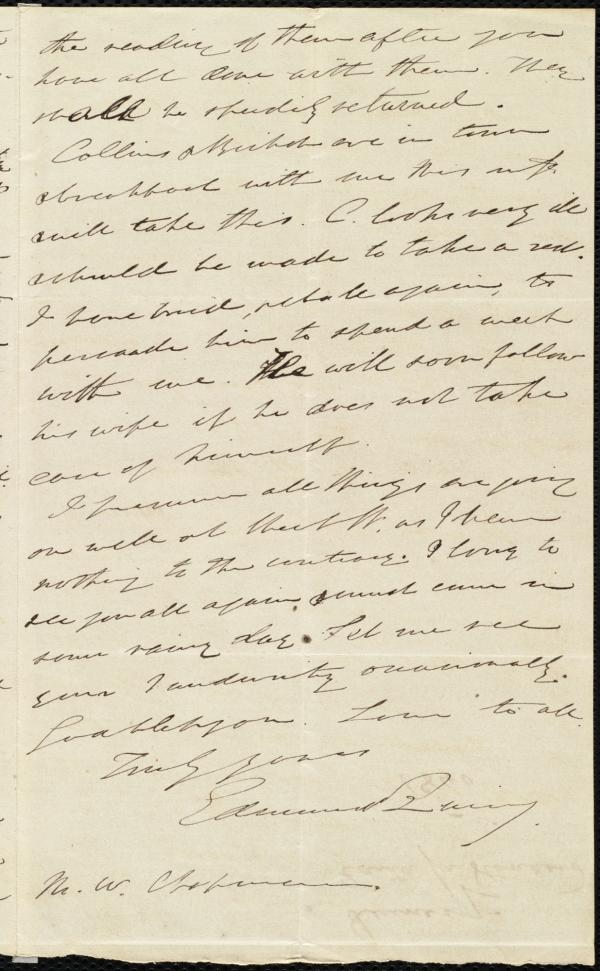 the reading of them after you
have all done with them. They
shall be speedily returned.
Collins & Birbeck are in town
& breakfast with me this m
& will take this. C. looks very ill
& should be made to take a rest.
I have tried, & shall again, to
persuade him to spend a week
with me. He will soon follow
his wife if he does not take
care of himself.
I presume all things are going
on well at West St. as I hear
nothing to the contrary. I long to
see you all again & must come in
some rainy day. Let me see
your handwriting occasionally.
God bless you. Love to all.
Truly yours
Edmund Quincy.
M. W. Chapman.